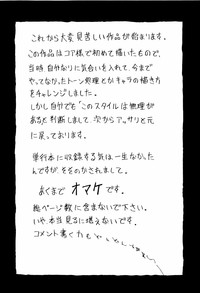 これから大変見苦しい作品が始まります。
この作品はコア様で初めて描いたもので、
当時 自分なりに気合いを入れて、今まで
やってなかったトーン処理とかキャラの描き方
をチャレンジしました。
しかし自分でも「このスタイルは無理が
ある」と判断しまして、次からアッサリと元
に戻っております。
単行本に収録する気は一生なかった
んですが、そそのかされまして。
あくまで オマケ です。
総ページ数に含まないで下さい。
いや、本当 見るに堪えないです。
コメント書くのも